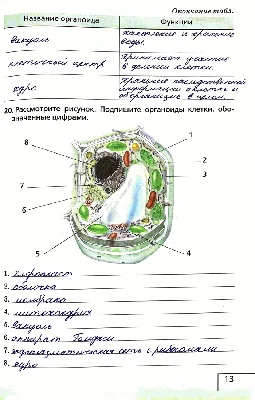 Окончание табл.
Название органоида Функции
вакуоль накопление и хранение воды.
клеточный центр принимает участие в делении клетки.
ядро хранение наследственной информации о клетке и об организме в целом.
20. Рассмотрите рисунок. Подпишите органоиды клетки, обо-
значенные цифрами.
8
1
7
2
3
6
5
4
1. хлоропласт
2. оболочка
3. мембрана
4. митохондрия
5. вакуоль
6. аппарат Гольджи
7. эндоплазматическая сеть с рибосомами
8. ядро
13